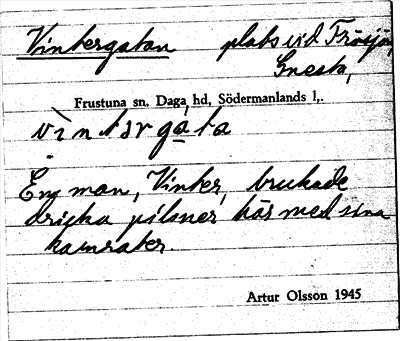 Vintergatan plats vid Frösjön,
Gnesta,
Frustuna sn, Daga hd, Södermanlands l,.
vìntərgàta
En man, Vinter, brukade
dricka pilsner här med sina
kamrater.
Artur Olsson 1945